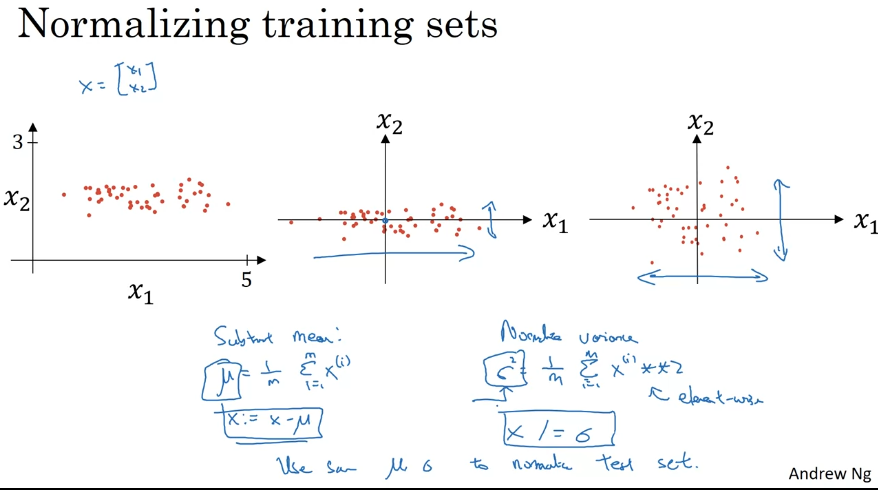 Normalizing training sets
x = [x₁ x₂]
3
x₂
5
x₁
x₂
x₁
x₂
x₁
Subtract mean:
μ = 1/m Σ_{i=1}^{m} x^(i)
x := x - μ
Normalize variance
σ² = 1/m Σ_{i=1}^{m} x^(i) ** 2
← element-wise
x /= σ
Use same μ, σ to normalize test set.
Andrew Ng